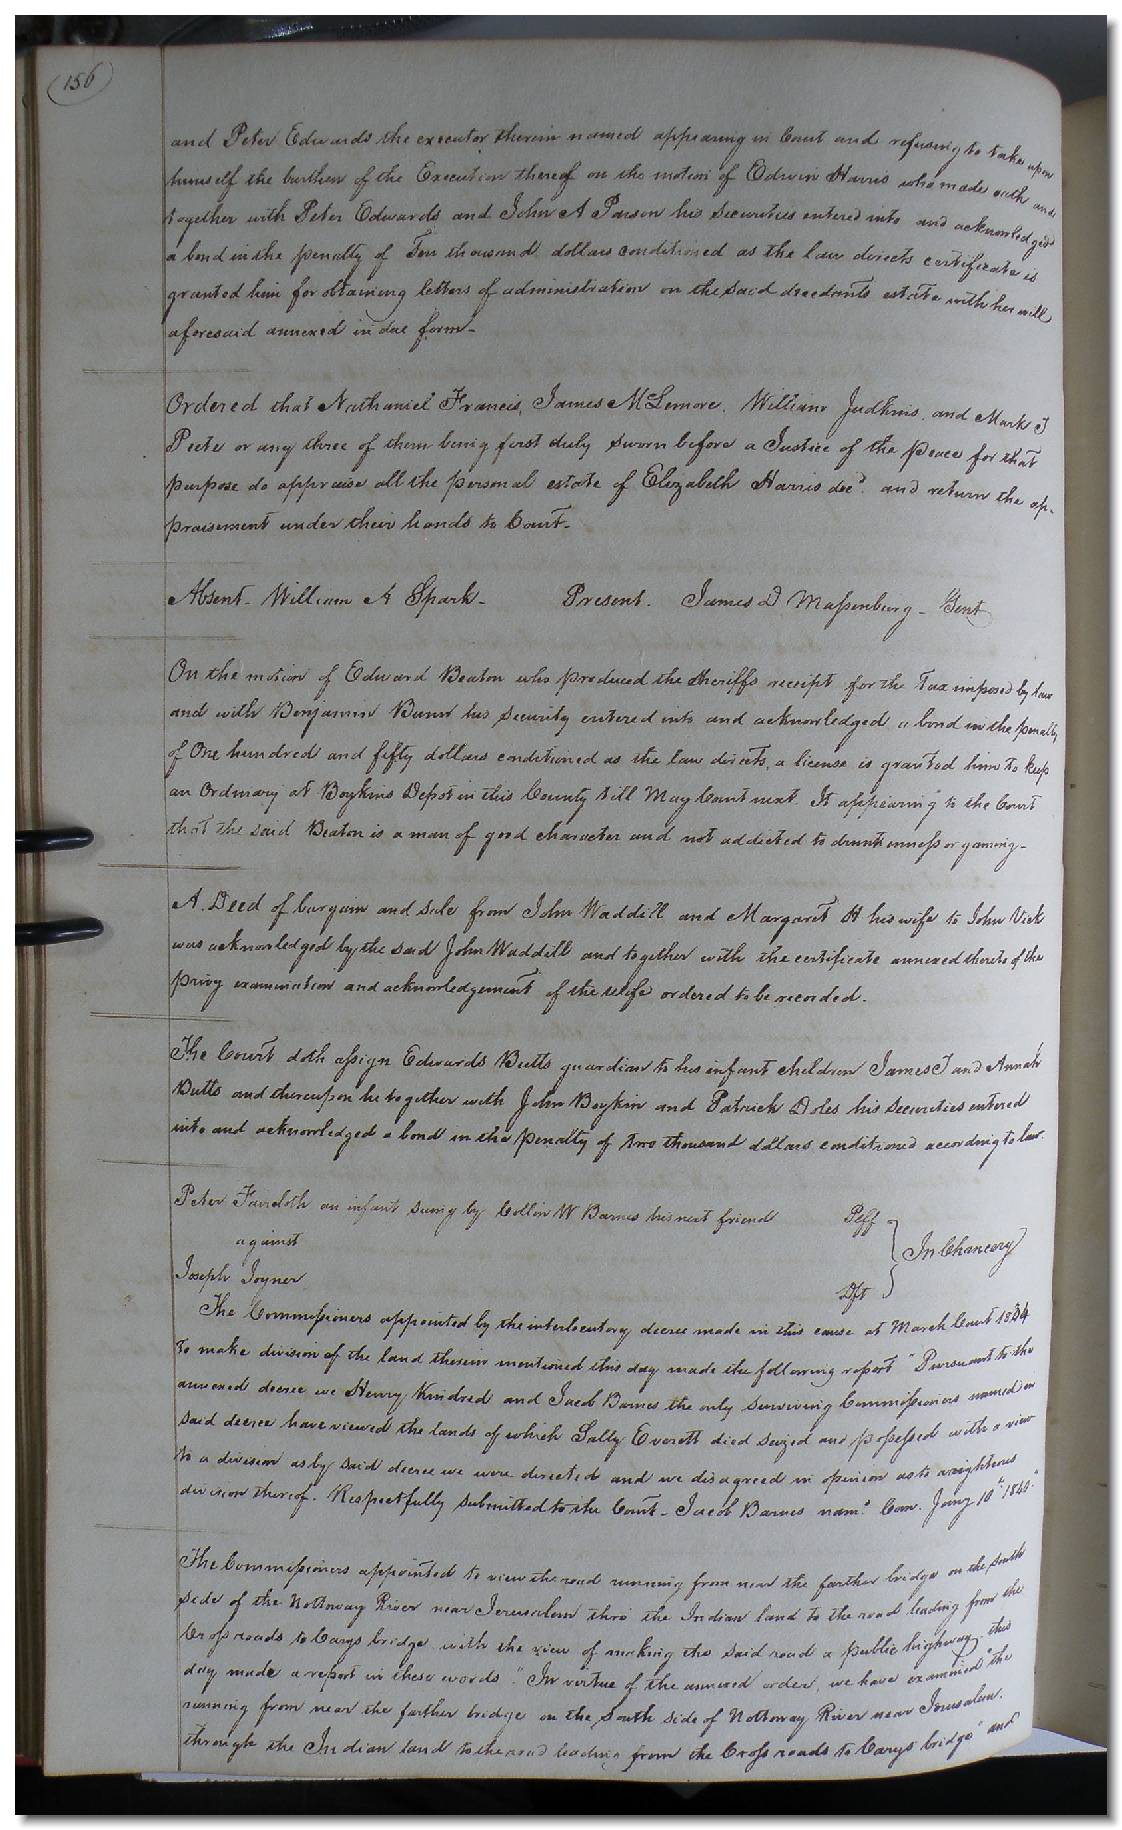 156
and Peter Edwards the executor therein named appearing in Court and refusing to take upon
himself the burthen of the Execution thereof on the motion of Edwin Harris who made oath and
together with Peter Edwards and John A Parson his securities entered into and acknowledged
a bond in the penalty of Ten thousand dollars conditioned as the law directs certificate is
granted him for obtaining letters of administration on the said decedents estate with her will
aforesaid annexed in due form-
Ordered that Nathaniel Francis, James McLemore, William Judkins, and Mark J
Peete or any three of them being first duly sworn before a Justice of the peace for that
purpose do appraise all the personal estate of Elizabeth Harris decd. and return the ap-
praisement under their hands to Court-
Absent- William A Spark- Present. James D Massenburg- Gent
On the motion of Edward Beaton who produced the Sheriffs receipt for the Tax imposed by law
and with Benjamin Bunn his security entered into and acknowledged a bond in the penalty
of One hundred and fifty dollars conditioned as the law directs, a license is granted him to keep
an Ordinary at Boykins Depot in this County till May Court next. It appearing to the Court
that the said Beaton is a man of good character and not addicted to drunkenness or gaming-
A Deed of bargain and sale from John Waddill and Margaret H his wife to John Vick
was acknowledged by the said John Waddill and together with the certificate annexed thereto of the
privy examination and acknowledgement of the wife ordered to be recorded.
The Court doth assign Edwards Butts guardian to his infant children James J and Annah
Butts and thereupon he together with John Boykin and Patrick Doles his securities entered
into and acknowledged a bond in the penalty of two thousand dollars conditioned according to law.
Peter Faircloth an infant suing by Collin W Barnes his next friend Plff
against In Chancery
Joseph Joyner Dft
The Commissioners appointed by the interlocutory decree made in this cause at March Court 1834
to make division of the land therein mentioned this day made the following report "Pursuant to the
annexed decree we Henry Kindred and Jacob Barnes the only surviving Commissioners named in
said decree have viewed the lands of which Sally Everett died seized and possessed with a view
to a division as by said decree we were directed and we disagreed in opinion as to a righteous
division thereof. Respectfully submitted to the Court- Jacob Barnes Com. Jany 10th 1840."
The Commissioners appointed to view the road running from near the farther bridge on the south
side of the Nottoway River near Jerusalem thro' the Indian land to the road leading from the
Cross roads to Carys bridge with the view of making the said road a public highway, this
day made a report in these words "In virtue of the annexed order, we have examined "the
running from near the farther bridge on the South side of Nottoway River near Jerusalem.
through the Indian land to the road leading from the Cross roads to Carys bridge" and